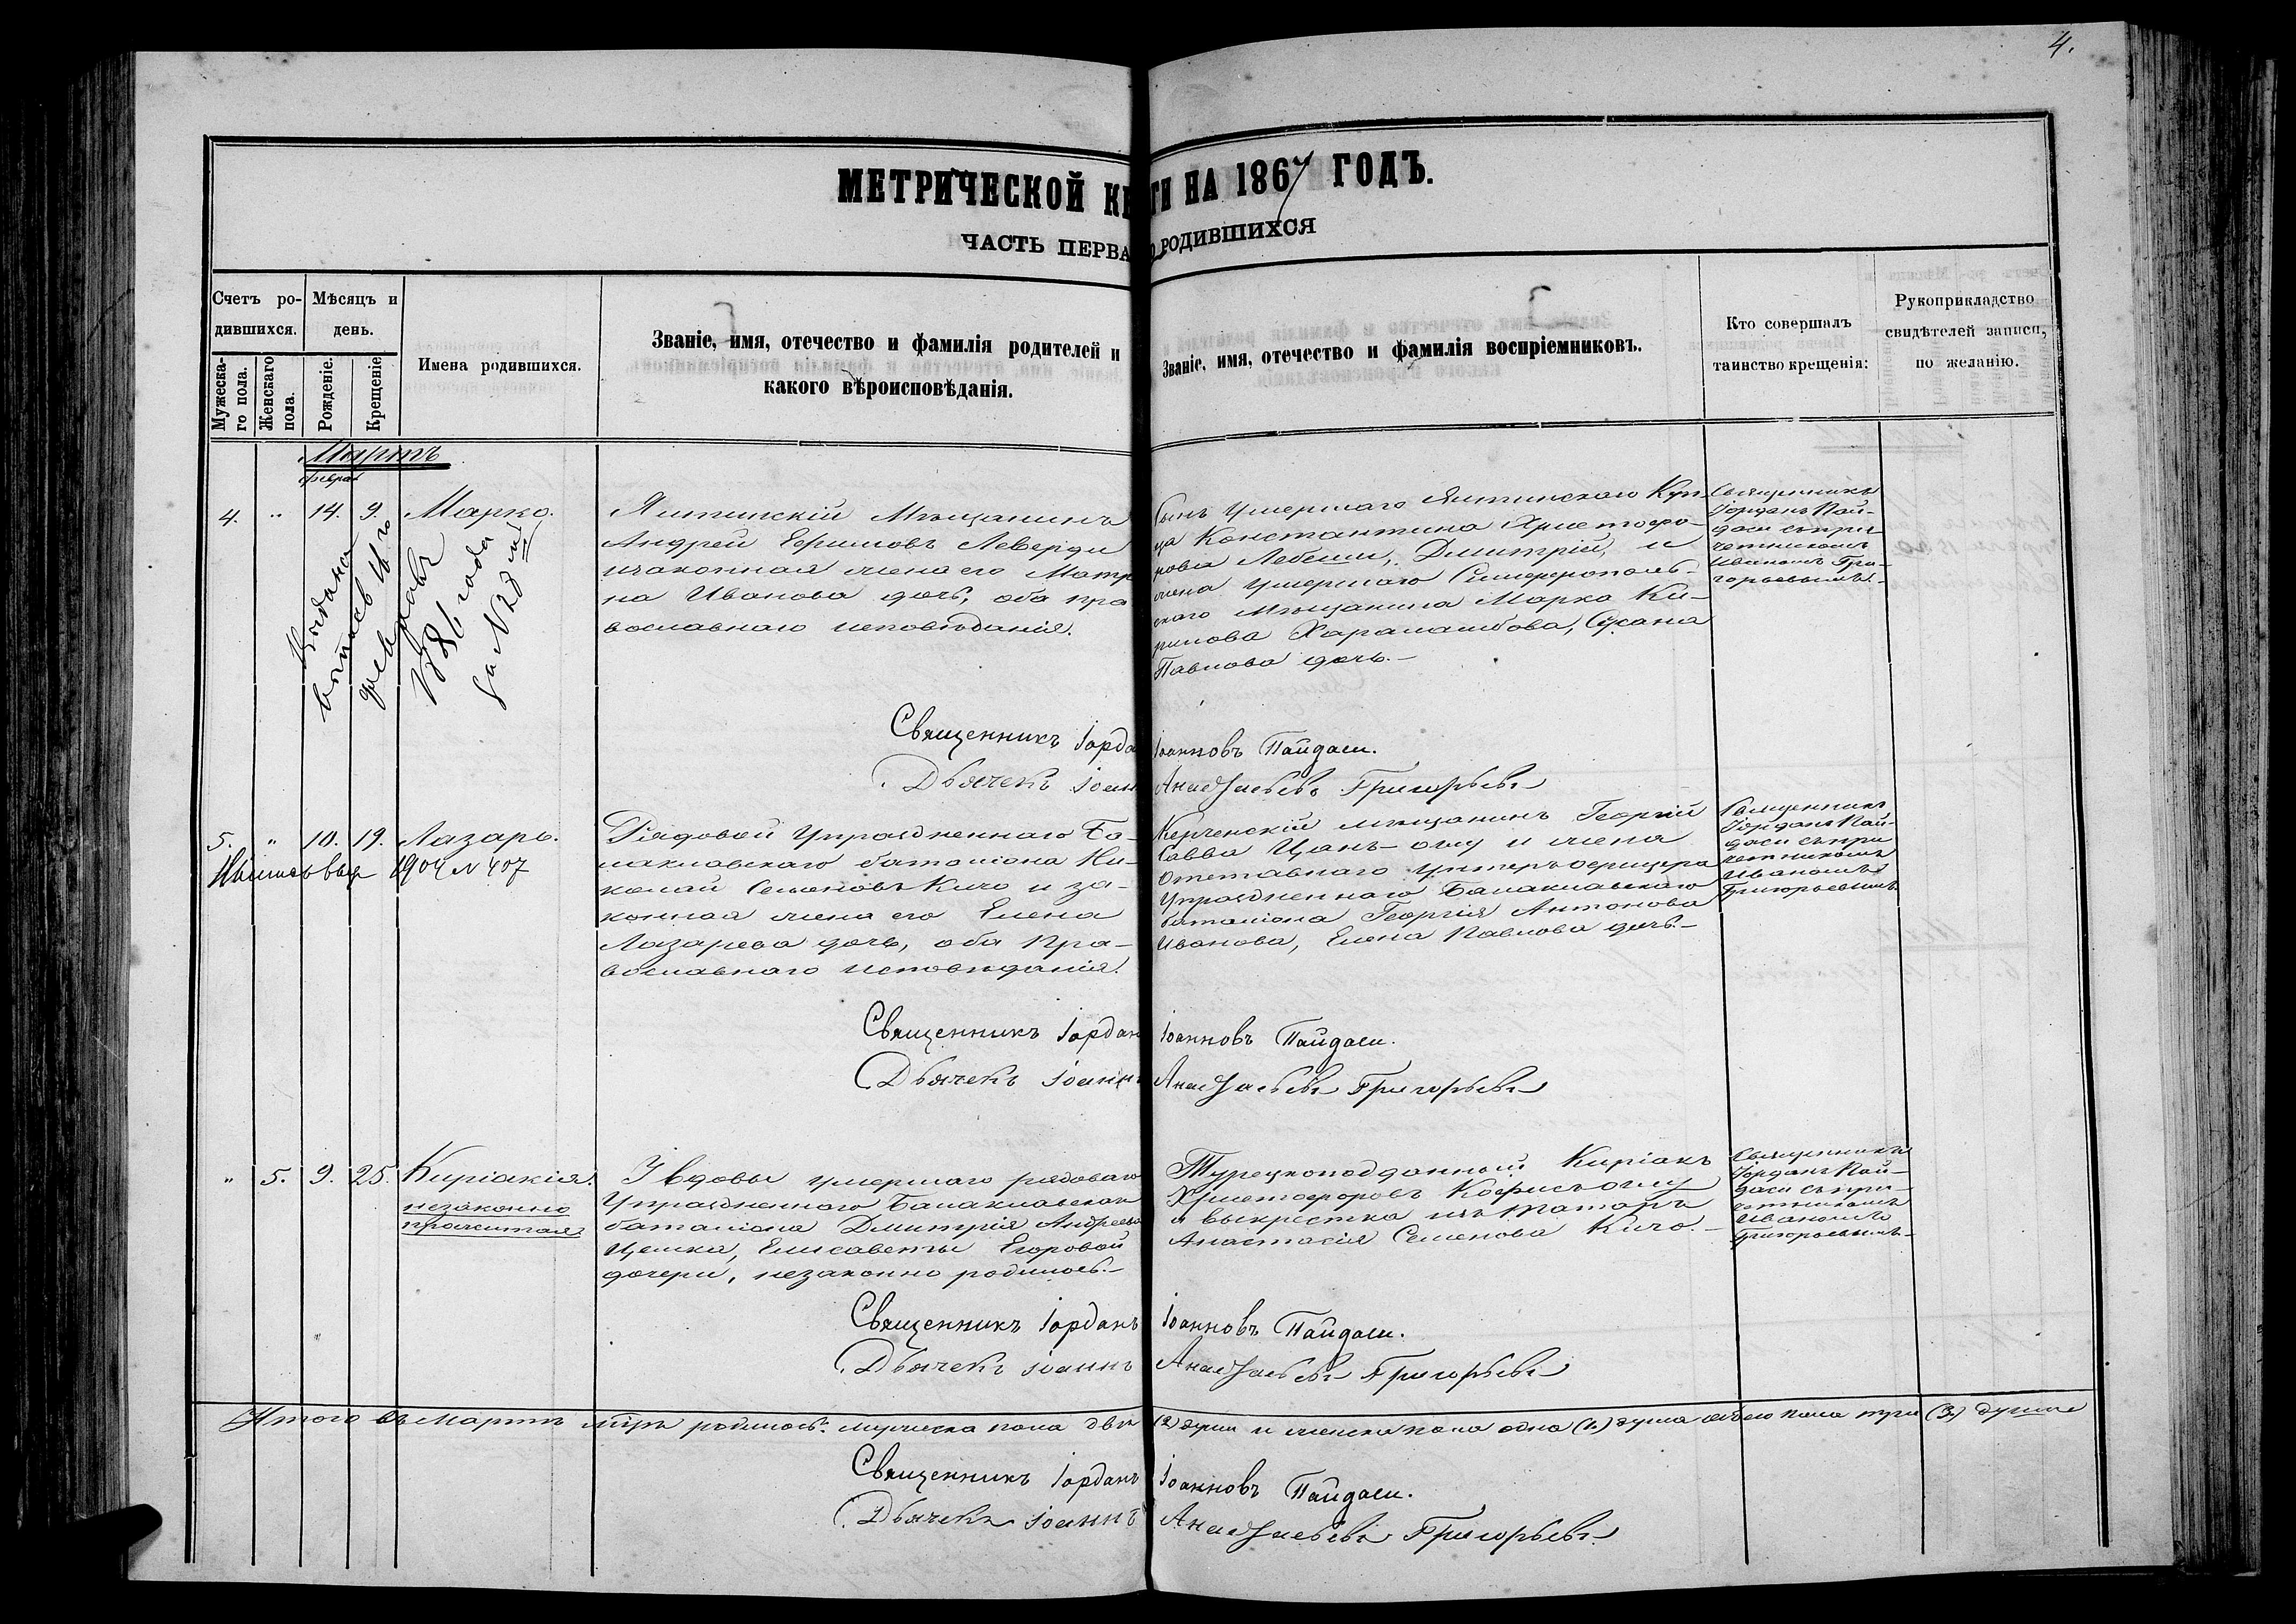 4.
МЕТРИЧЕСКОЙ КН ГИ НА 1867 ГОДЪ.
ЧАСТЬ ПЕРВА О РОДИВШИХСЯ
Счетъ ро-
дившихся.
Мужеска-
го пола.
Женскаго
пола.
Мѣсяцъ и
день.
Рожденіе.
Крещеніе
Имена родившихся.
Званіе, имя, отечество и фамилія родителей и
какого вѣроисповѣданія.
Званіе, имя, отечество и фамилія воспріемниковъ.
Кто совершалъ
таинство крещенія:
Рукоприкладство
свидѣтелей записи,
по желанію.
Мартъ
февра
4. " 14. 9. Марко.
Выдана
выпись 16го
февраля
1886 года
за № 28м
Ялтинскій Мѣщанинъ
Андрей Ефимовъ Леверди
изаконная жена его Матр
на Иванова дочь, оба пра
вославнаго исповѣданія.
Сынъ умершаго Ялтинскаго Куп-
ца Константина Христофо-
рова Лебеши, Димитрій, и
жена умершаго Симферополь-
скаго мѣщанина Марка Ки-
рилова Харалашбова, Сухана
Павлова дочь.-
Священникъ
Іорданъ Пай-
даси съпри-
четникомъ
Иваномъ Гри-
горьевымъ.-
Священникъ Іорда Іоанновъ Пайдаси.
Дьячекъ Іоан Анастасьевъ Григорьевъ
5. " 10. 19. Лазарь.
выд 1904 № 407
Рядовой Упраздненнаго Ба-
лаклавскаго баталіона Ни-
колай Семеновъ Кичо и за-
конная жена его Елена
Лазарева дочь, оба Пра-
вославнаго исповѣданія.
Керченскій мѣщанинъ Георгій
Савва Цанъ-оглу и жена
Отставнаго Унтеръ офицера
Упраздненнаго Балаклавскаго
баталіона Георгія Антонова
Иванова, Елена Павлова дочь.-
Священникъ
Іорданъ Пай-
даси съпри
четникомъ
Иваномъ
Григорьевымъ
Священникъ Іордан Іоанновъ Пайдаси.
Дьячекъ Іоаннъ Анастасьевъ Григорьевъ
" 5. 9. 25. Киріакія.
незаконно
прижитая.
У вдовы умершаго рядоваго
Упраздненнаго Балаклавскаго
баталіона Димитрія Андреева
Цемка, Елисаветы Егоровой
дочери, незаконно родилось.-
Турецкоподданный Киріакъ
Христофоровъ Кофисъ оглу
и выкрестка изъ татаръ
Анастасія Семенова Кичо.-
Священникъ
Іорданъ Пай-
даси съпри-
четникомъ
Иваномъ
Григорьевымъ-
Священникъ Іорданъ Іоанновъ Пайдаси.
Дьячекъ Іоаннъ Анастасьевъ Григорьевъ
Итого въ Мартѣ родилось: мужеска пола двѣ (2) души и женска пола одна (1) душа обоего пола три (3) души
Священникъ Іорданъ Іоанновъ Пайдаси.
Дьячекъ Іоаннъ Анастасьевъ Григорьевъ